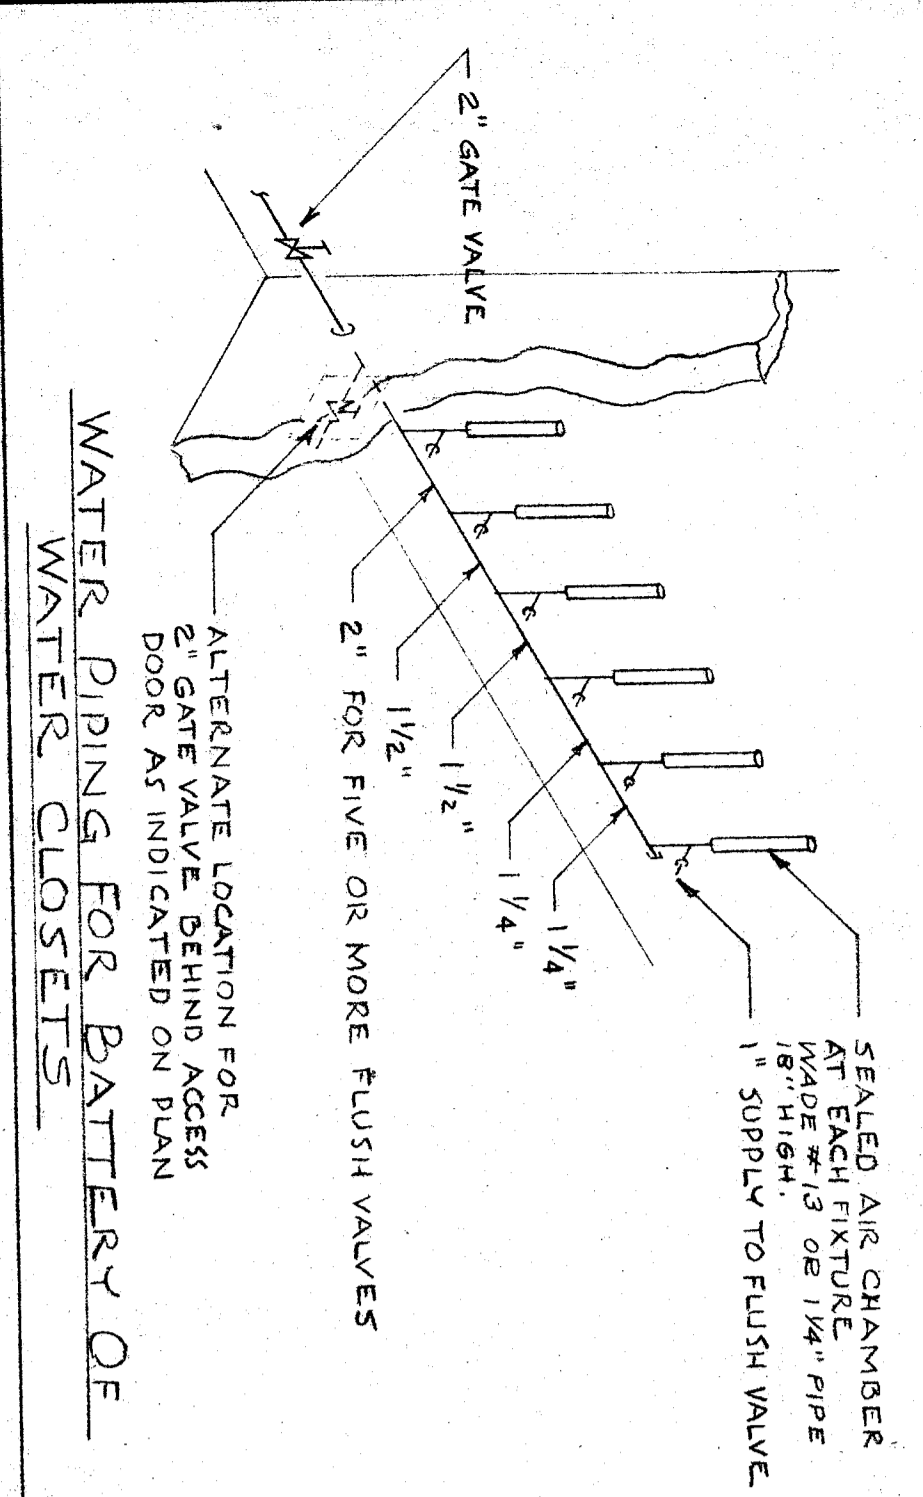 SEALED AIR CHAMBER
AT EACH FIXTURE
WADE #13 OR 1¼" PIPE
18" HIGH.
1" SUPPLY TO FLUSH VALVE
2" GATE VALVE
1¼"
1¼"
1½"
1½"
2" FOR FIVE OR MORE FLUSH VALVES
ALTERNATE LOCATION FOR
2" GATE VALVE BEHIND ACCESS
DOOR AS INDICATED ON PLAN
WATER PIPING FOR BATTERY OF
WATER CLOSETS